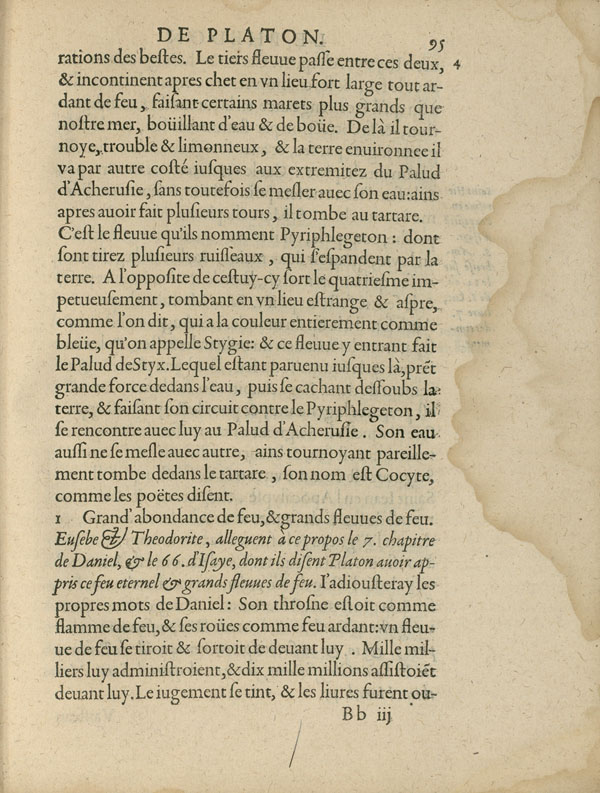 DE PLATON. 95
rations des bestes. Le tiers fleuue passe entre ces deux, 4
& incontinent apres chet en vn lieu fort large tout ar-
dant de feu, faisant certains marets plus grands que
nostre mer, boüillant d'eau & de boüe. De là il tour-
noye, trouble & limonneux, & la terre enuironnee il
va par autre costé iusques aux extremitez du Palud
d'Acherusie, sans toutefois se mesler auec son eau: ains
apres auoir fait plusieurs tours, il tombe au tartare.
C'est le fleuue qu'ils nomment Pyriphlegeton: dont
sont tirez plusieurs ruisseaux, qui s'espandent par la
terre. A l'opposite de cestuy-cy sort le quatriesme im-
petueusement, tombant en vn lieu estrange & aspre,
comme l'on dit, qui a la couleur entierement comme
bleüe, qu'on appelle Stygie: & ce fleuue y entrant fait
le Palud de Styx. Lequel estant paruenu iusques là, prẽt
grande force dedans l'eau, puis se cachant dessoubs la
terre, & faisant son circuit contre le Pyriphlegeton, il
se rencontre auec luy au Palud d'Acherusie. Son eau
aussi ne se mesle auec autre, ains tournoyant pareille-
ment tombe dedans le tartare, son nom est Cocyte,
comme les poëtes disent.
1 Grand' abondance de feu, & grands fleuues de feu.
Eusebe & Theodorite, alleguent à ce propos le 7. chapitre
de Daniel, & le 66. d'Isaye, dont ils disent Platon auoir ap-
pris ce feu eternel & grands fleuues de feu. I'adiousteray les
propres mots de Daniel: Son throsne estoit comme
flamme de feu, & ses roües comme feu ardant: vn fleu-
ue de feu se tiroit & sortoit de deuant luy. Mille mil-
liers luy administroient, & dix mille millions assistoiẽt
deuant luy. Le iugement se tint, & les liures furent ou-
Bb iij